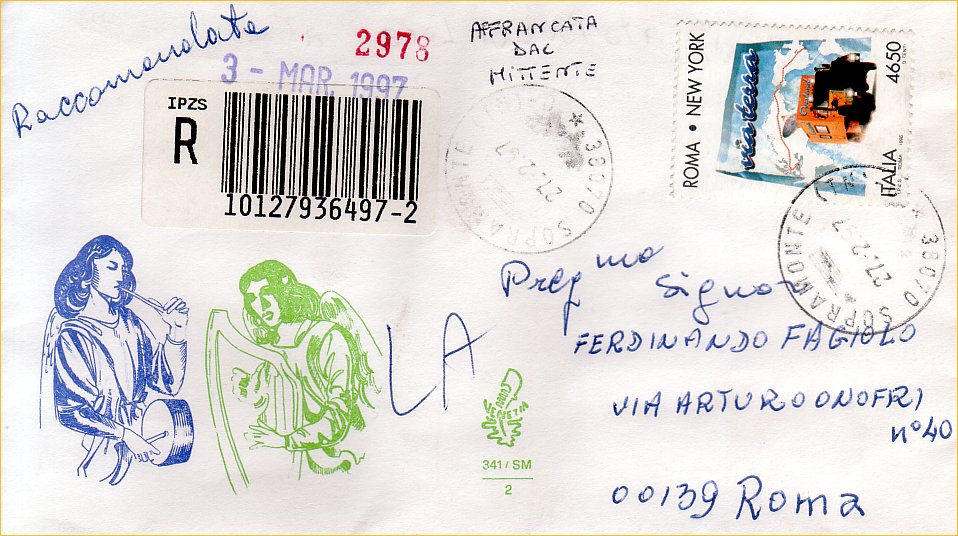 Raccomandata
2978
3 - MAR. 1997
AFFRANCATA
DAL
MITTENTE
IPZS
R
10127936497-2
38070 SOPRAMONTE
27.2.97
ROMA • NEW YORK
via terra
ITALIA 4650
38070 SOPRAMONTE
27.2.97
Preg mo Signor
FERDINANDO FAGIOLO
VIA ARTURO ONOFRI
n° 40
00139 Roma
LA
VENETIA
341 / SM
2